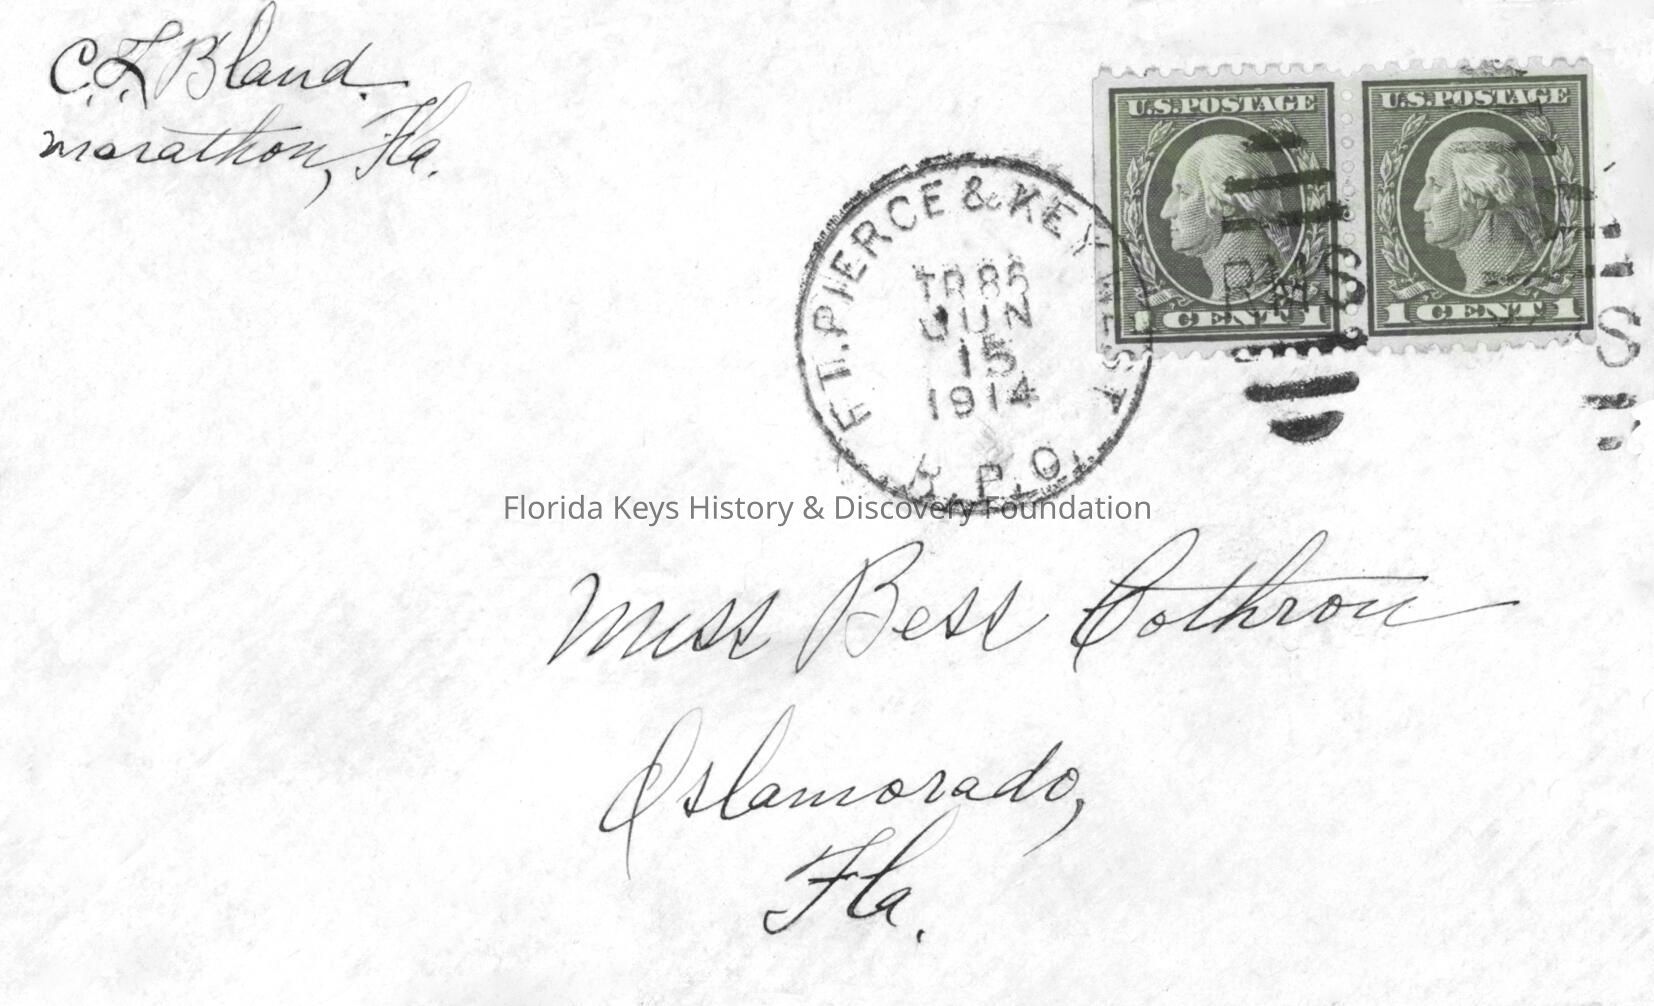 C.F. Bland.
Marathon, Fla.
U.S. POSTAGE
1 CENT 1
U.S. POSTAGE
1 CENT 1
FT. PIERCE & KEY WEST
TR 86
JUN
15
1914
R.P.O.
RMS
S
Florida Keys History & Discovery Foundation
Miss Bess Cothron
Islamorado,
Fla.